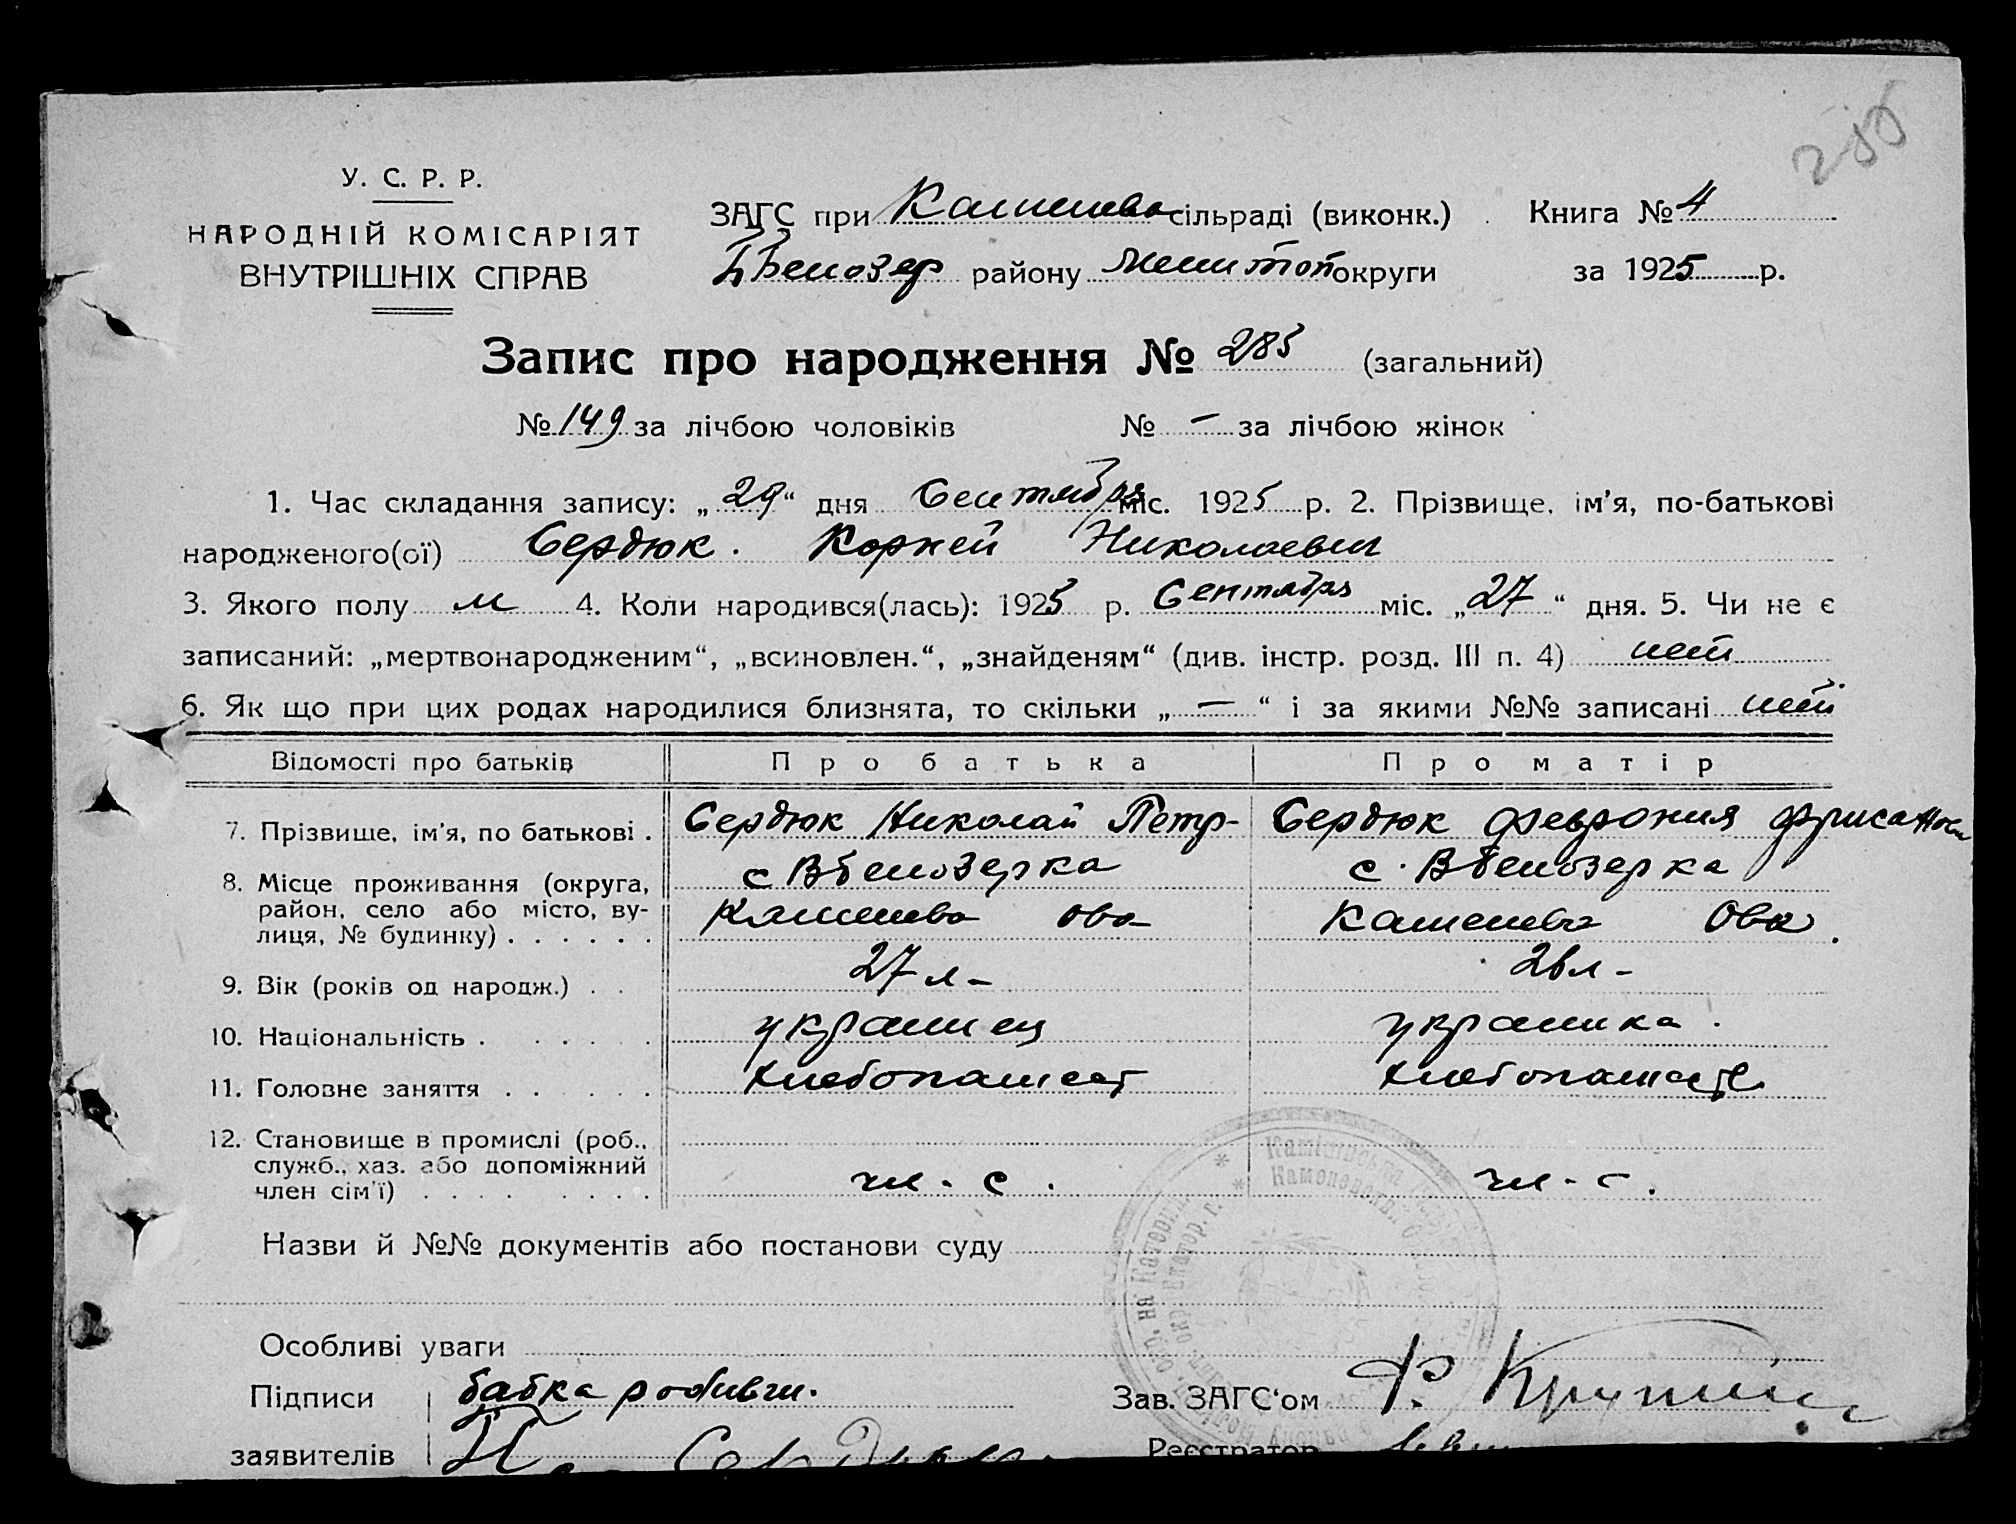 285
У. С. Р. Р.
НАРОДНІЙ КОМІСАРІЯТ
ВНУТРІШНІХ СПРАВ
ЗАГС при Каменева сільраді (виконк.) Книга № 4
ВБелозер району Мелитоп округи за 1925 р.
Запис про народження № 285 (загальний)
№ 149 за лічбою чоловіків № — за лічбою жінок
1. Час складання запису: „29“ дня Сентября міс. 1925 р. 2. Прізвище, ім'я, по-батькові
народженого(ої) Сердюк. Корней Николаевич
3. Якого полу м 4. Коли народився(лась): 1925 р. Сентября міс. „27“ дня. 5. Чи не є
записаний: „мертвонародженим“, „всиновлен.“, „знайденям“ (див. інстр. розд. III п. 4) нет
6. Як що при цих родах народилися близнята, то скільки „—“ і за якими №№ записані нет
Відомості про батьків Про батька Про матір
7. Прізвище, ім'я, по батькові . Сердюк Николай Петр- Сердюк Феврония
8. Місце проживання (округа, с ВБелозерка с. ВБелозерка
район, село або місто, ву- Каменева ова Каменева Ова.
лиця, № будинку) . . . . . .
9. Вік (років од народж.) . . 27 л- 26 л-
10. Національність . . . . . . украинец украинка.
11. Головне заняття . . . . . хлебопашест хлебопашеств
12. Становище в промислі (роб.,
служб., хаз. або допоміжний чл. с. чл. - с.
член сім'ї) . . . . . . . . .
Назви й №№ документів або постанови суду
Особливі уваги
Підписи бабка Зав. ЗАГС'ом
заявителів Н Сердюк Реєстратор